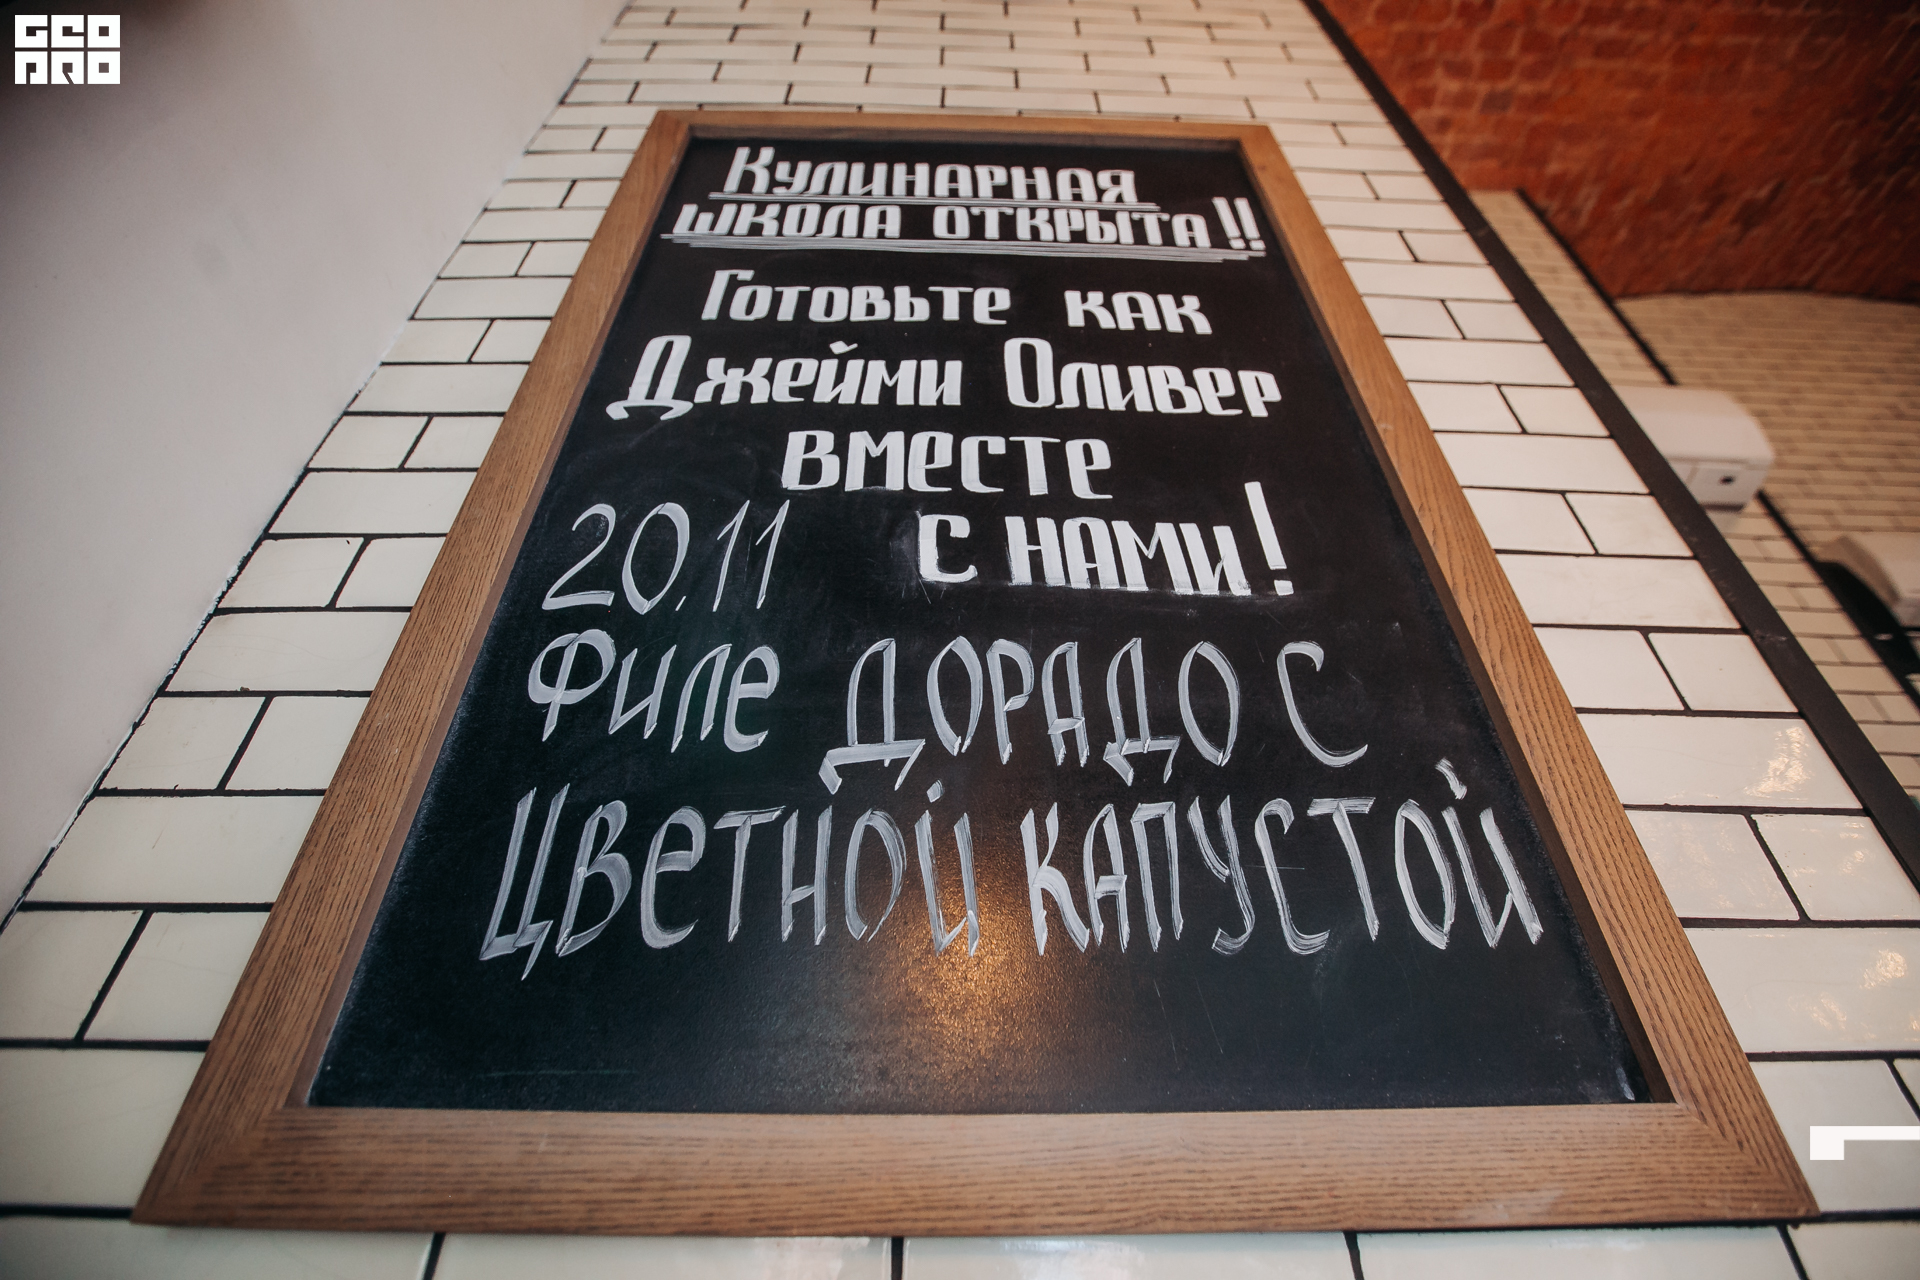 GEO
PRO
Кулинарная
школа открыта!!
Готовьте как
Джейми Оливер
вместе
с нами!
20.11
Филе дорадо с
цветной капустой